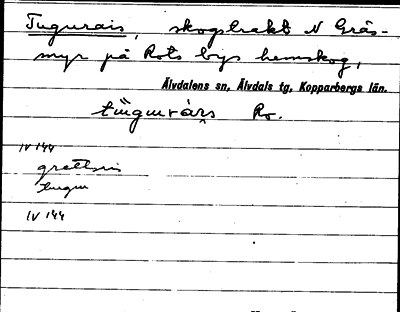 Tugurais, skogstrakt N Gräs-
myr på Rots bys hemskog,
Älvdalens sn, Älvdals tg, Kopparbergs län.
Ro.
IV 144
tugu
IV 144